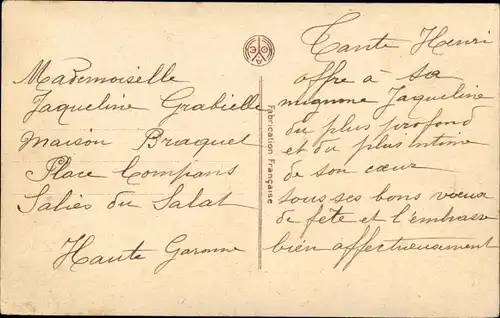 Mademoiselle
Jaqueline Grabielle
Maison Braquet
Place Compans
Salies du Salat
Haute Garonne
Fabrication Française
Tante Henri
offre à sa
mignone Jaqueline
du plus profond
et du plus intime
de son cœur
tous ses bons vœux
de fête et l'embrasse
bien affectueusement